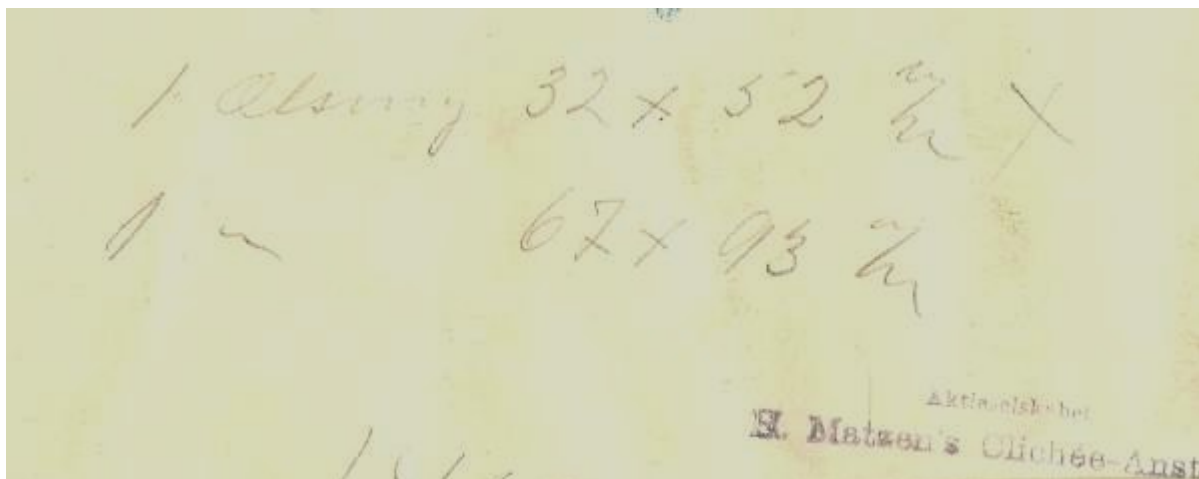 1 Ætsning 32 x 52 m/m X
1 〃 67 x 93 m/m
Aktieselskabet
H. Matzen's Clichée-Anst